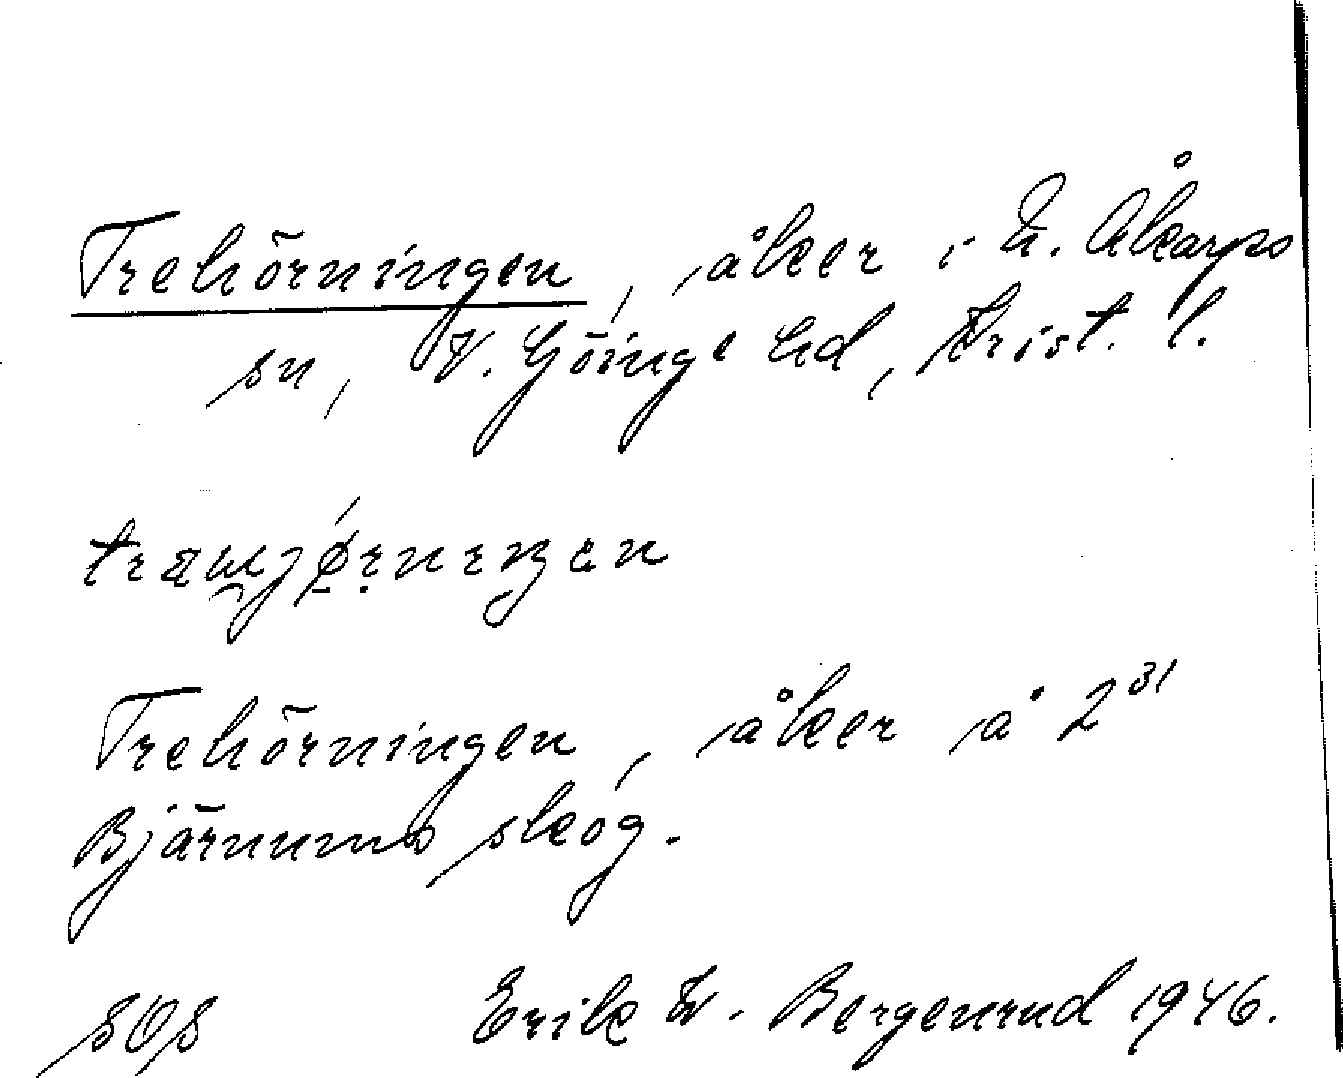 Trehörningen, åker i N. Åkarps
sn, V. Göinge hd, Krist. l.
Trehörningen, åker å 2³¹
Bjärnums skog.
SOS Erik W. Bergenrud 1946.